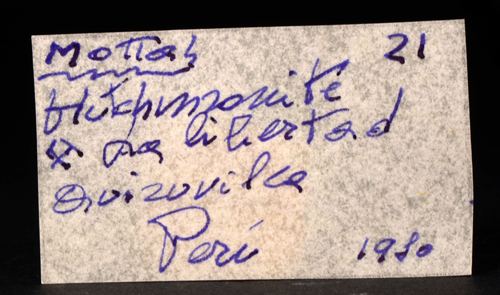 Mottas 21
Hutchinsonite
La libertad
Quiruvilca
Perú 1980